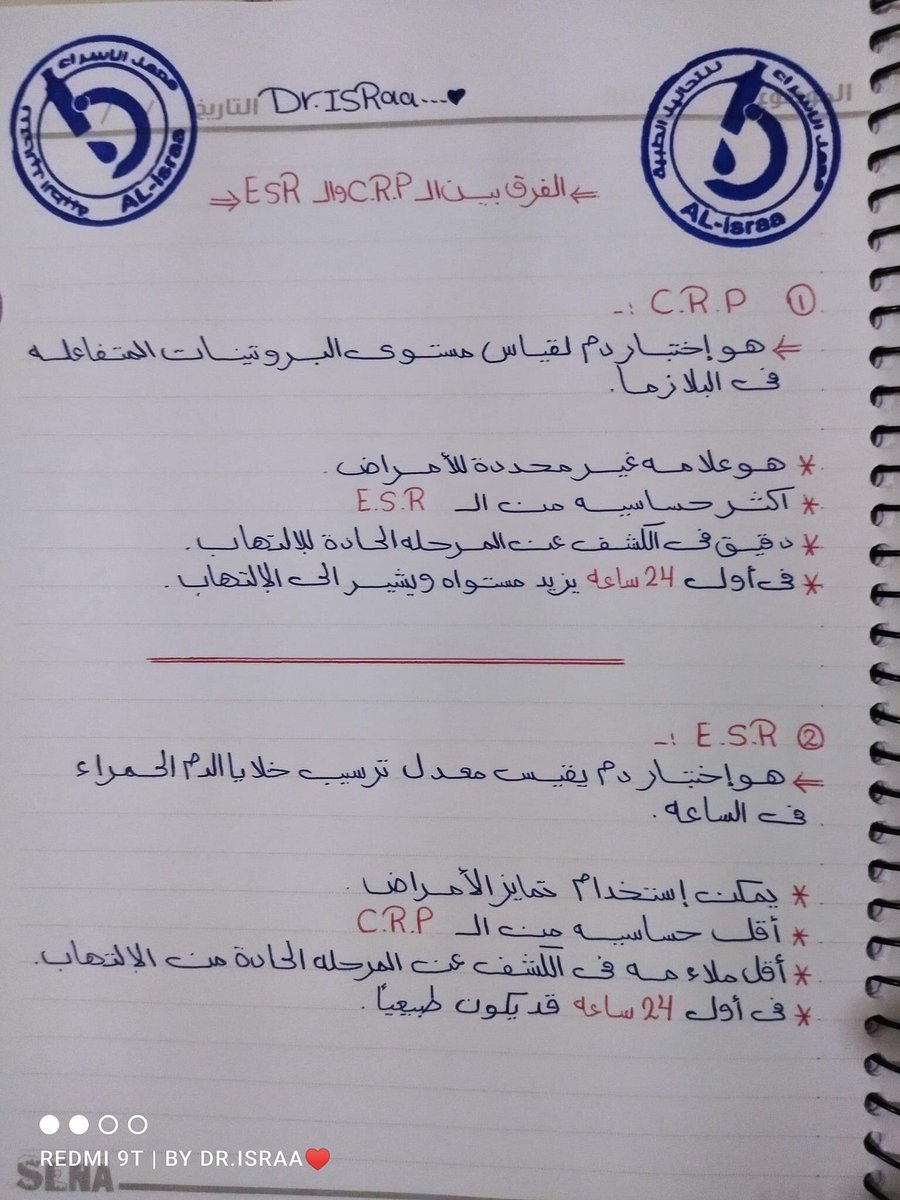 معمل الاسراء
للتحاليل الطبية
AL-israa
التاريخ / /
Dr.ISRaa...♥
الموضوع
معمل الاسراء
للتحاليل الطبية
AL-israa
⇐ الفرق بين الـ C.R.P والـ ESR ⇒
① C.R.P :-
⇐ هو إختبار دم لقياس مستوى البروتينات المتفاعله
فى البلازما.
* هو علامه غير محددة للأمراض.
* اكثر حساسيه من الـ E.S.R
* دقيق فى الكشف عن المرحله الحادة للإلتهاب.
* فى أول 24 ساعه يزيد مستواه ويشير الى الإلتهاب.
② E.S.R :-
⇐ هو إختبار دم يقيس معدل ترسيب خلايا الدم الحمراء
فى الساعه.
* يمكن إستخدام تمايز الأمراض.
* أقل حساسيه من الـ C.R.P
* أقل ملاءمه فى الكشف عن المرحله الحادة من الإلتهاب.
* فى أول 24 ساعه قد يكون طبيعياً.
REDMI 9T | BY DR.ISRAA♥
SENA